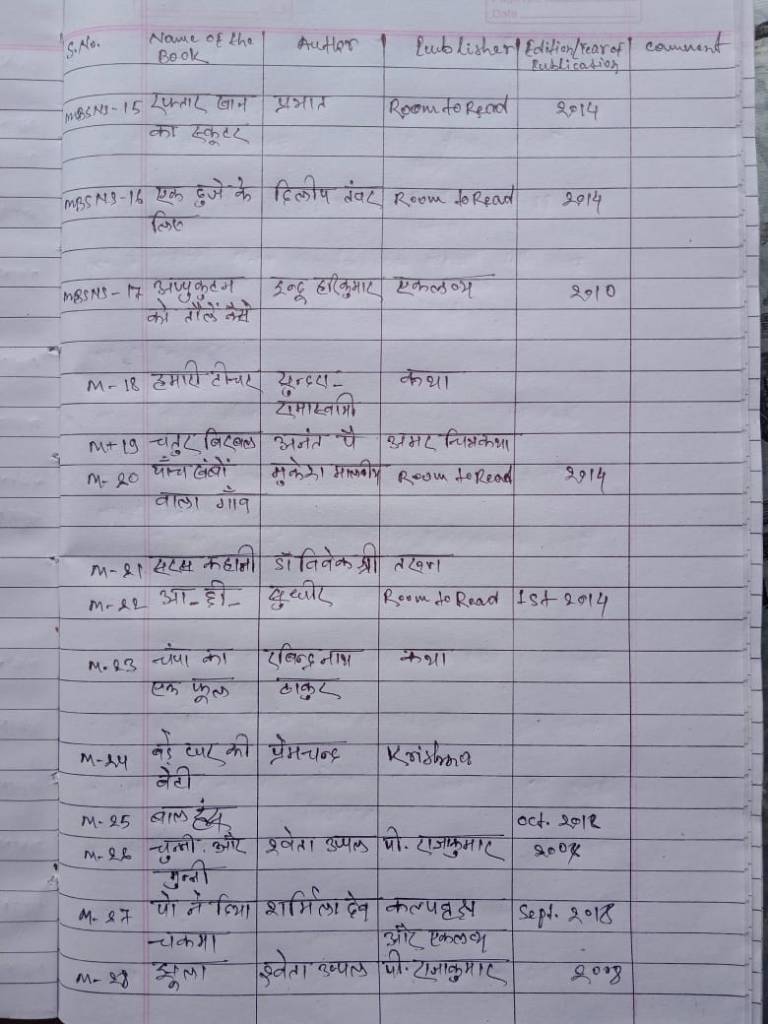 S.No. Name of the Author Publisher Edition/Year of comment
Book Publication
MBSNS-15 रफ्तार खान प्रभात Room to Read 2014
का स्कूटर
MBSNS-16 एक दुजे के दिलीप तंवर Room to Read 2014
लिए
MBSNS-17 अप्पुकुटन इन्दू हरिकुमार एकलव्य 2010
को तौलें कैसे
M-18 हमारी टीचर सुन्दरा- कथा
रामास्वामी
M-19 चतुर बिरबल अनंत पै अमर चित्रकथा
M-20 पाँच खंबों मुकेश मालवीय Room to Read 2014
वाला गाँव
M-21 सरस कहानी डॉ विवेक श्री तरुण
M-22 आ-छी- सुधीर Room to Read 1st 2014
M-23 चंपा का रबिन्द्र नाथ कथा
एक फूल ठाकुर
M-24 बड़े घर की प्रेमचन्द Krishna
बेटी
M-25 बाल हंस Oct. 2012
M-26 चुन्नी और श्वेता उप्पल पी. राजाकुमार
मुन्नी
M-27 पो ने दिया शर्मिला देव कल्पवृक्ष Sept. 2018
चकमा और एकलव्य
M-28 झूला श्वेता उप्पल पी. राजाकुमार 2008